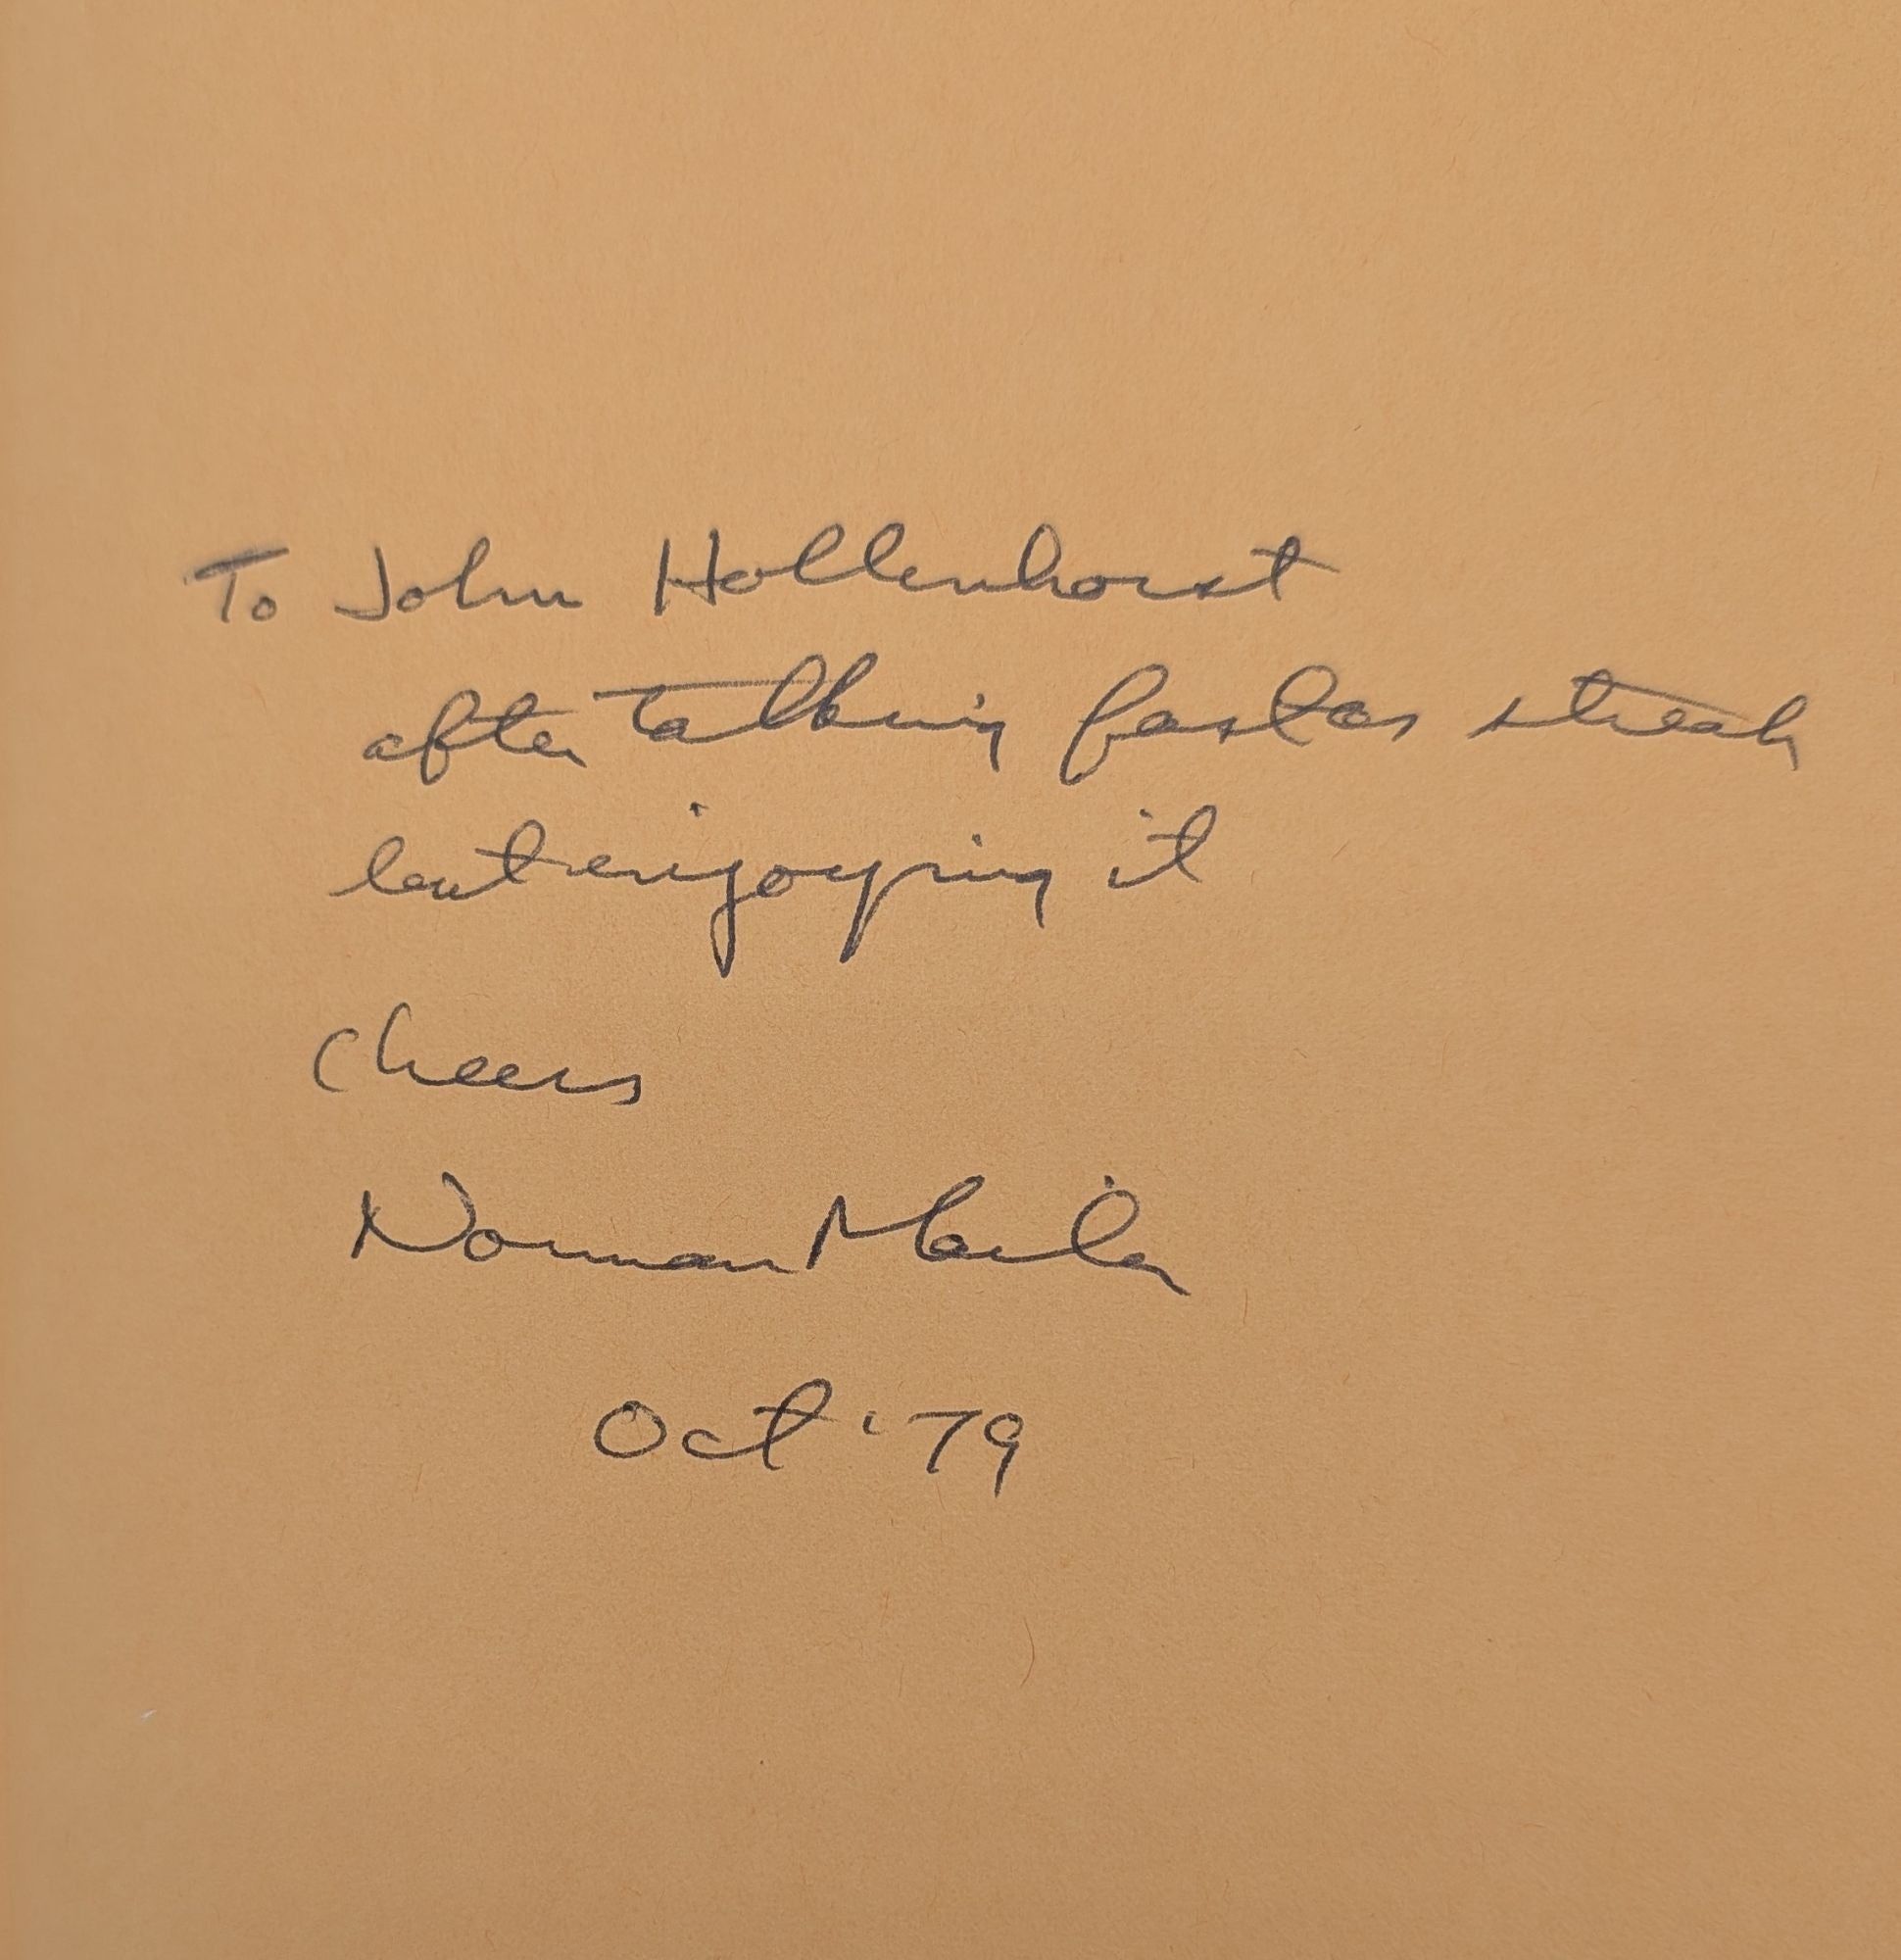 To John Hollenhorst
after talking fast as streak
but enjoying it
Cheers
Norman Mailer
Oct '79